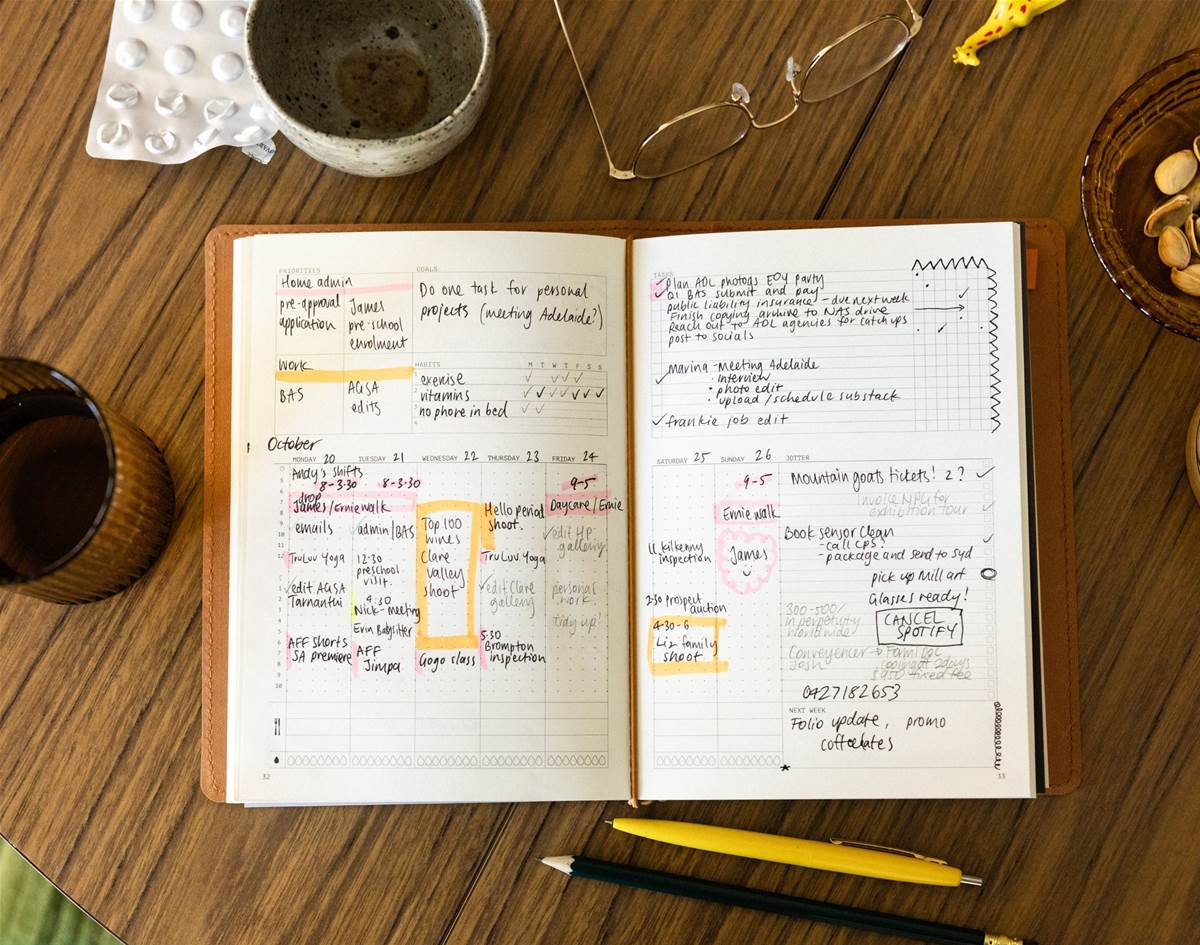 PRIORITIES
Home admin
pre-approval
application
James
pre-school
enrolment
Work
BAS
AGSA
edits
GOALS
Do one task for personal
projects (meeting Adelaide?)
HABITS
M T W T F S S
1
exercise
2
vitamins
3
no phone in bed
4
October
MONDAY 20
TUESDAY 21
WEDNESDAY 22
THURSDAY 23
FRIDAY 24
Andy's shifts
8-3-30
8-3-30
9-5
drop
James/Ernie walk
Daycare/Ernie
emails
TruLuv Yoga
edit AGSA
Tarnanthi
AFF shorts
SA premiere
admin/BAS
12:30
preschool
visit.
4:30
Nick-meeting
Erin Babysitter
AFF
Jimpa
Top 100
wines
Clare
Valley
shoot
Gogo class
Hello period
shoot.
TruLuv Yoga
edit Clare
gallery
5:30
Brompton
inspection
edit HP
gallery
personal
work.
tidy up!
32
TASKS
Plan ADL photogs EOY party
Q1 BAS submit and pay
public liability insurance - due next week
Finish copying archive to NAS drive
Reach out to ADL agencies for catch ups
post to socials
- Meeting Adelaide
• interview
• photo edit
• upload/schedule substack
frankie job edit
SATURDAY 25
SUNDAY 26
11 Kilkenny
inspection
2:30 Prospect
auction
4-30-6
Liz family
shoot
9-5
Ernie walk
James
JOTTER
Mountain goats tickets! 2?
Invoice NPG for
exhibition tour
Book sensor clean
- call CPS?
- package and send to Syd
pick up Mill art
Glasses ready!
300-500/
in perpetuity
worldwide
CANCEL
SPOTIFY
Conveyencer → Form1 DOC
Josh
2 days
$950 fixed fee
0427182653
NEXT WEEK
Folio update, promo
33